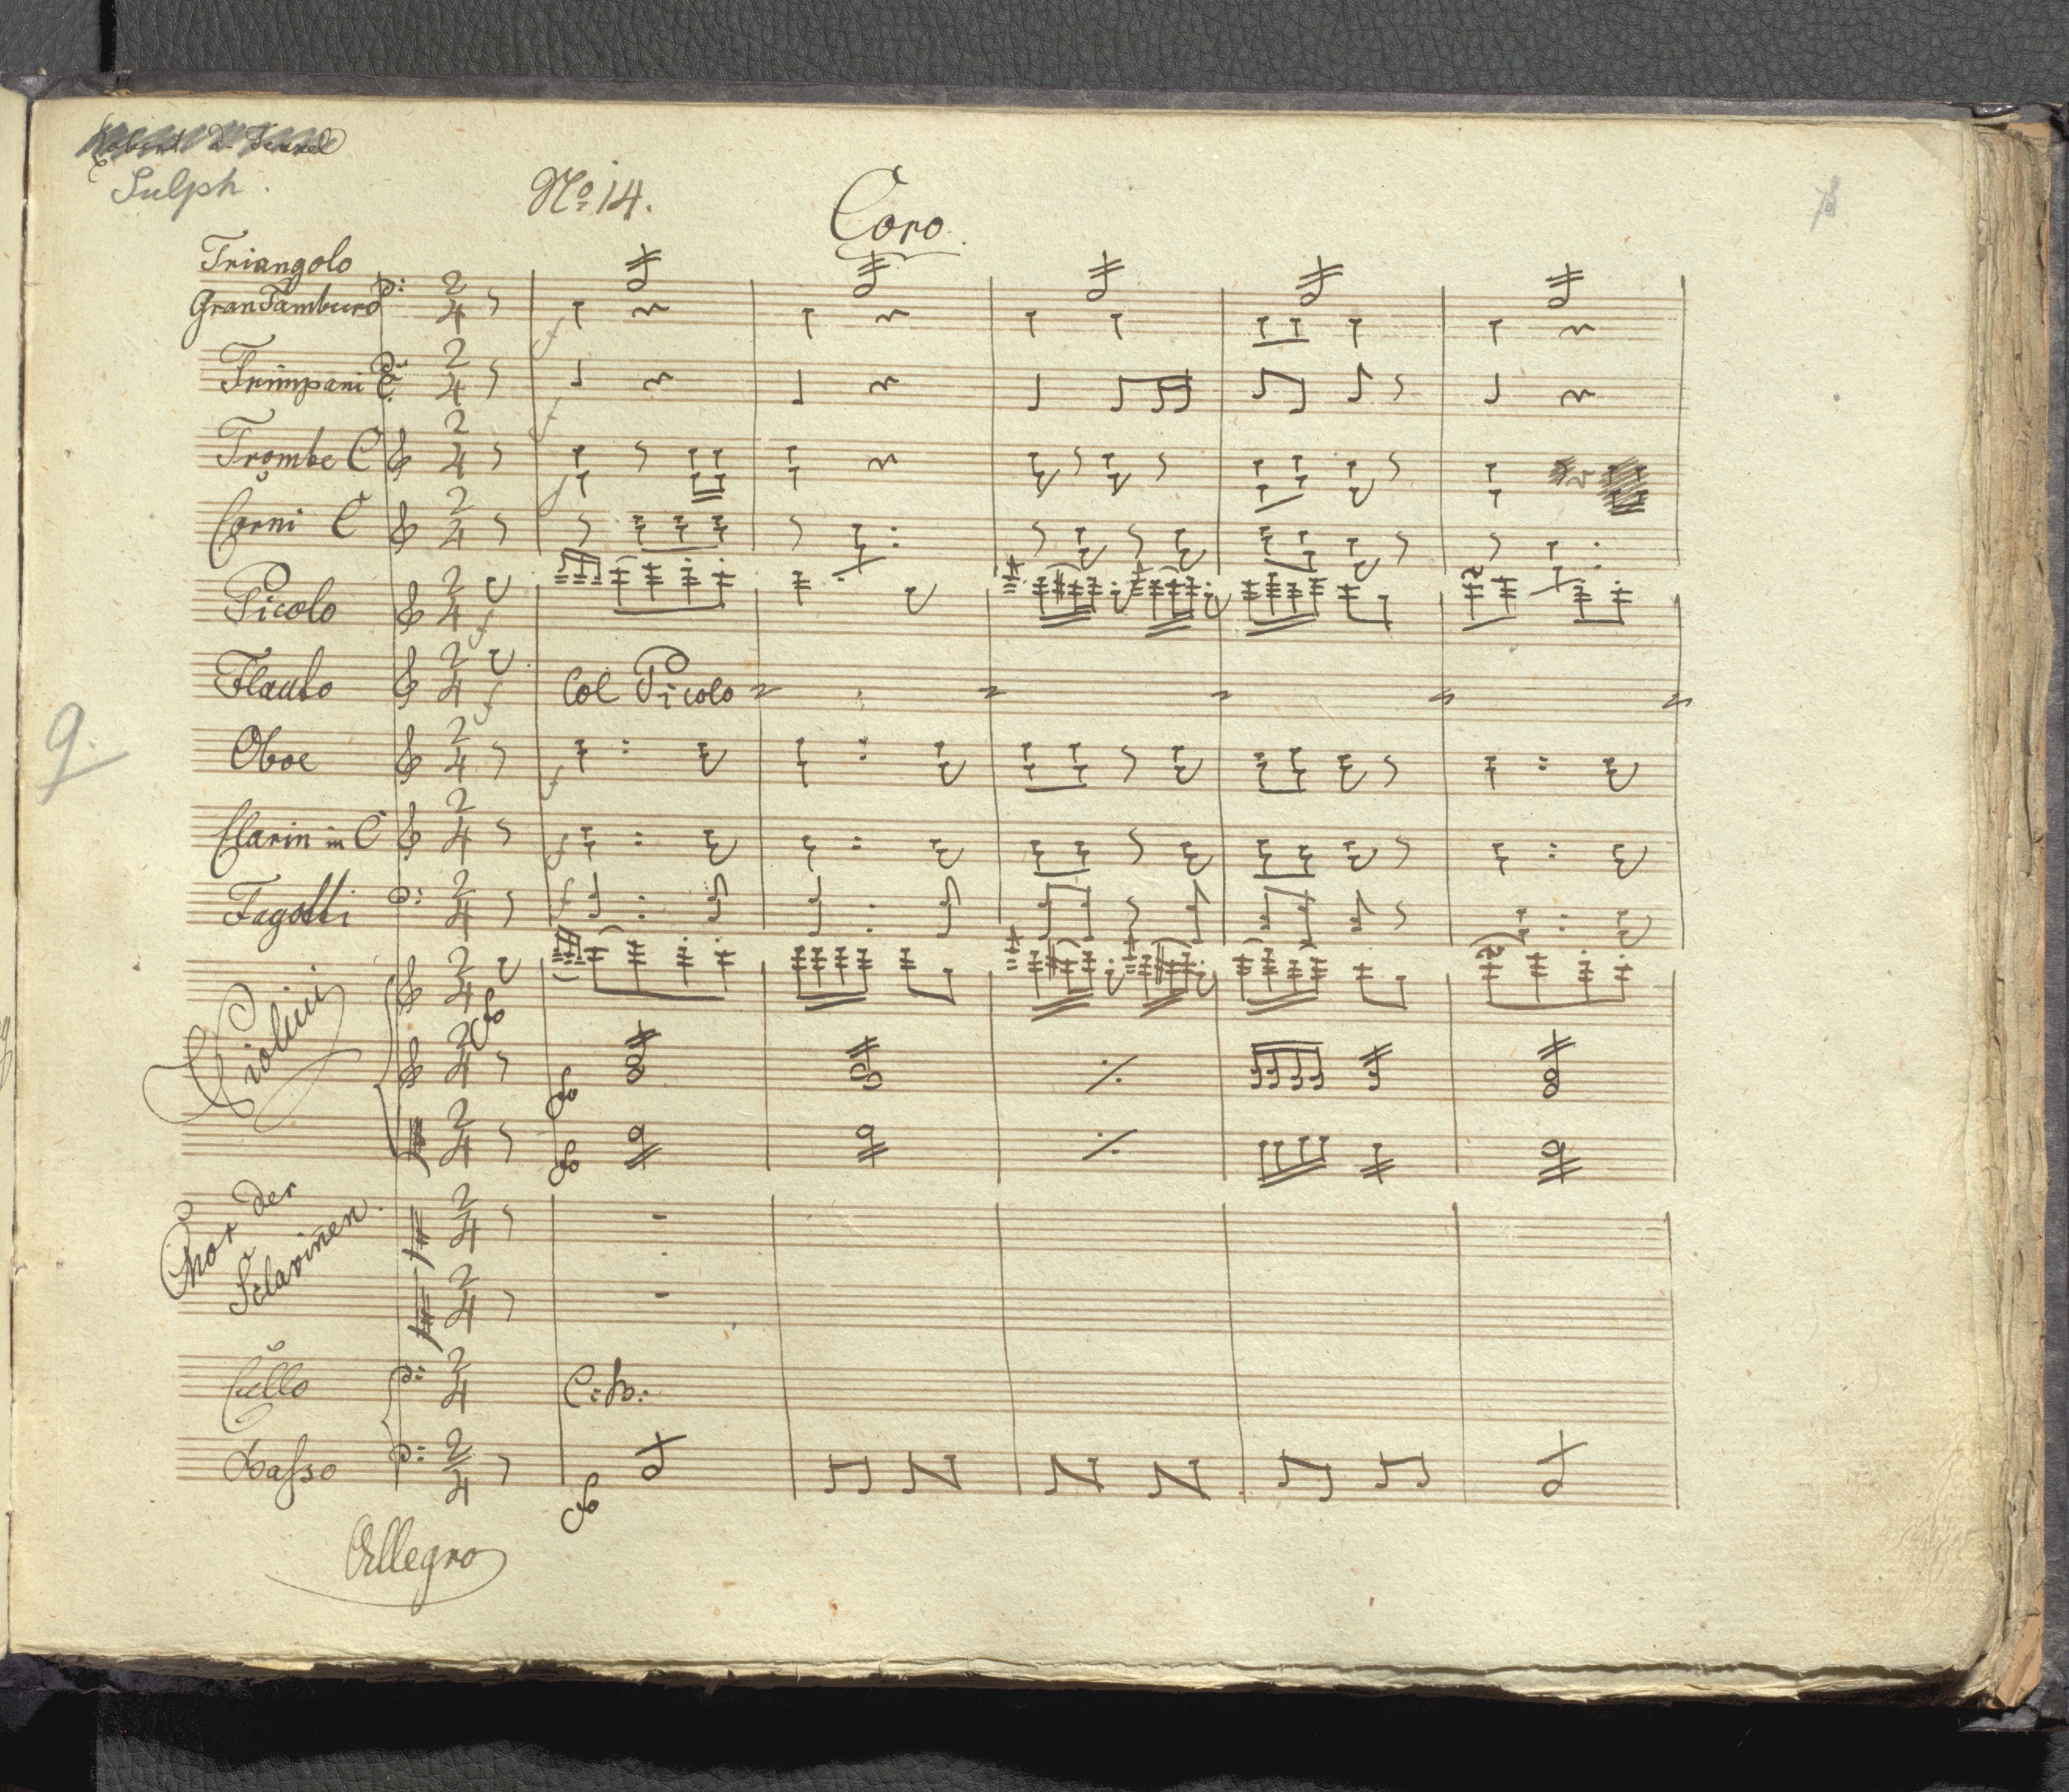 Sulph.
No. 14.
Coro.
Triangolo
Gran Tamburo
Trimpani C.
Trombe C
Corni C
Picolo
Flauto
Col Picolo
9.
Oboe
Clarin in C
Fagotti
Violini
Chor der
Sclavinen.
Cello
C: B:
Basso
Allegro